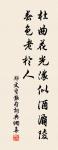 杜曲花光濃似酒灞陵
春色老於人